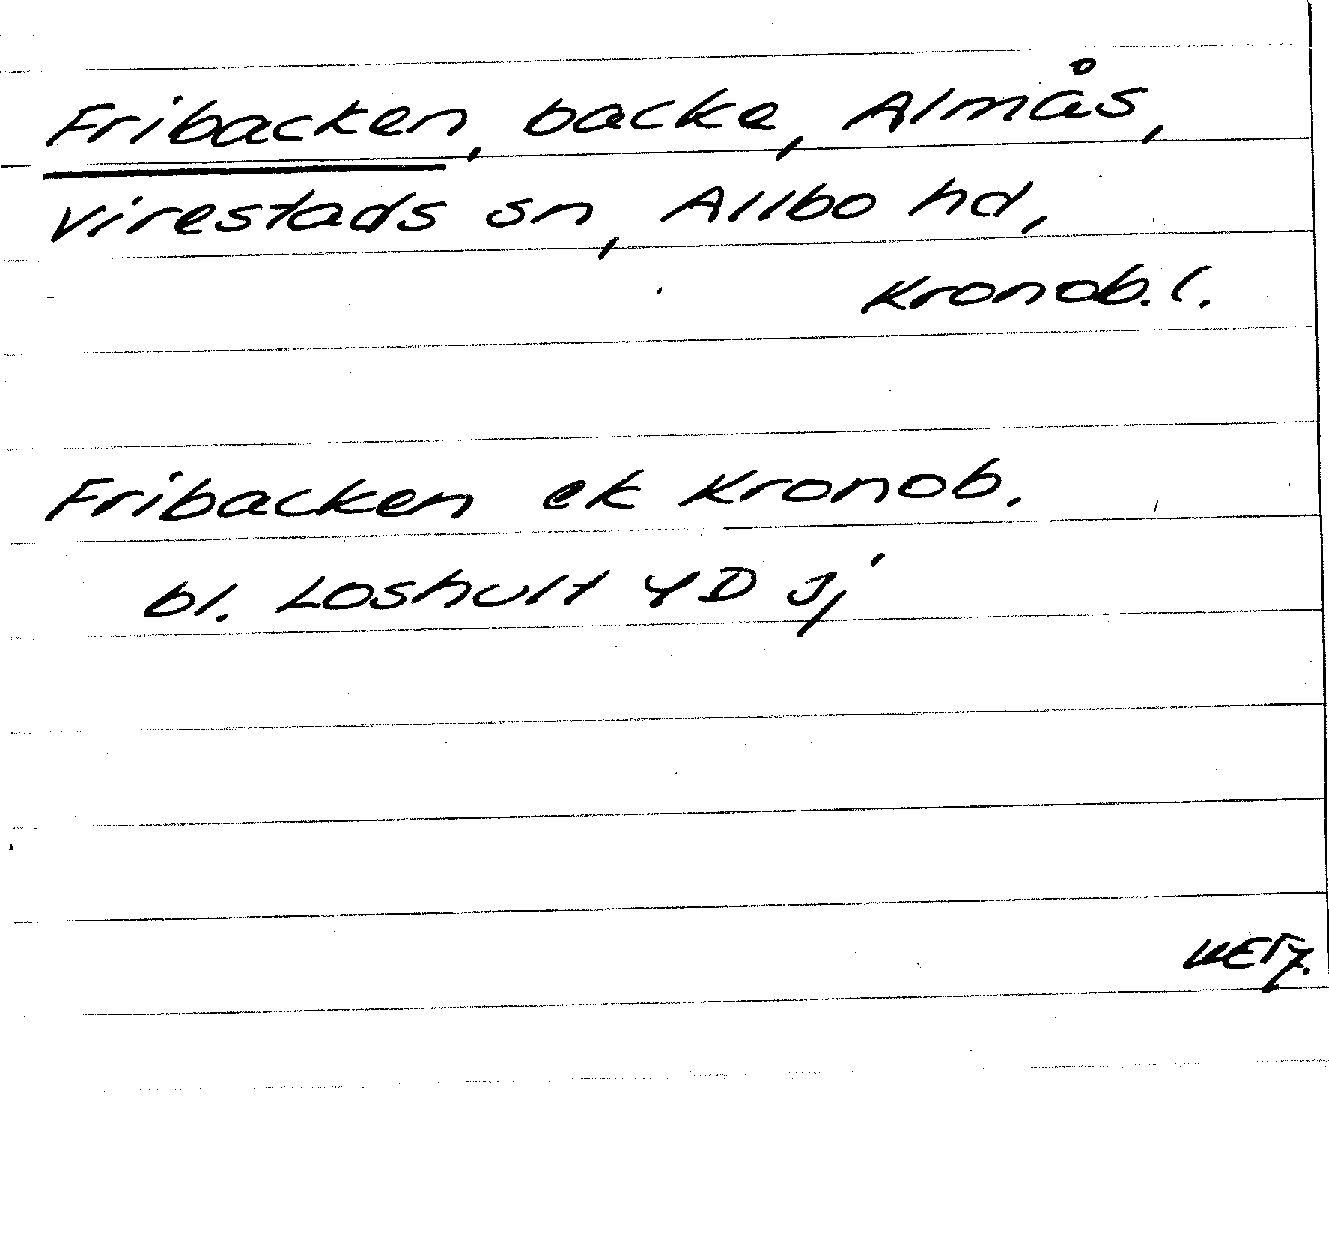 Fribacken, backe, Almås,
Virestads sn, Allbo hd,
Kronob. l.
Fribacken ek Kronob.
bl. Loshult 4D Sj